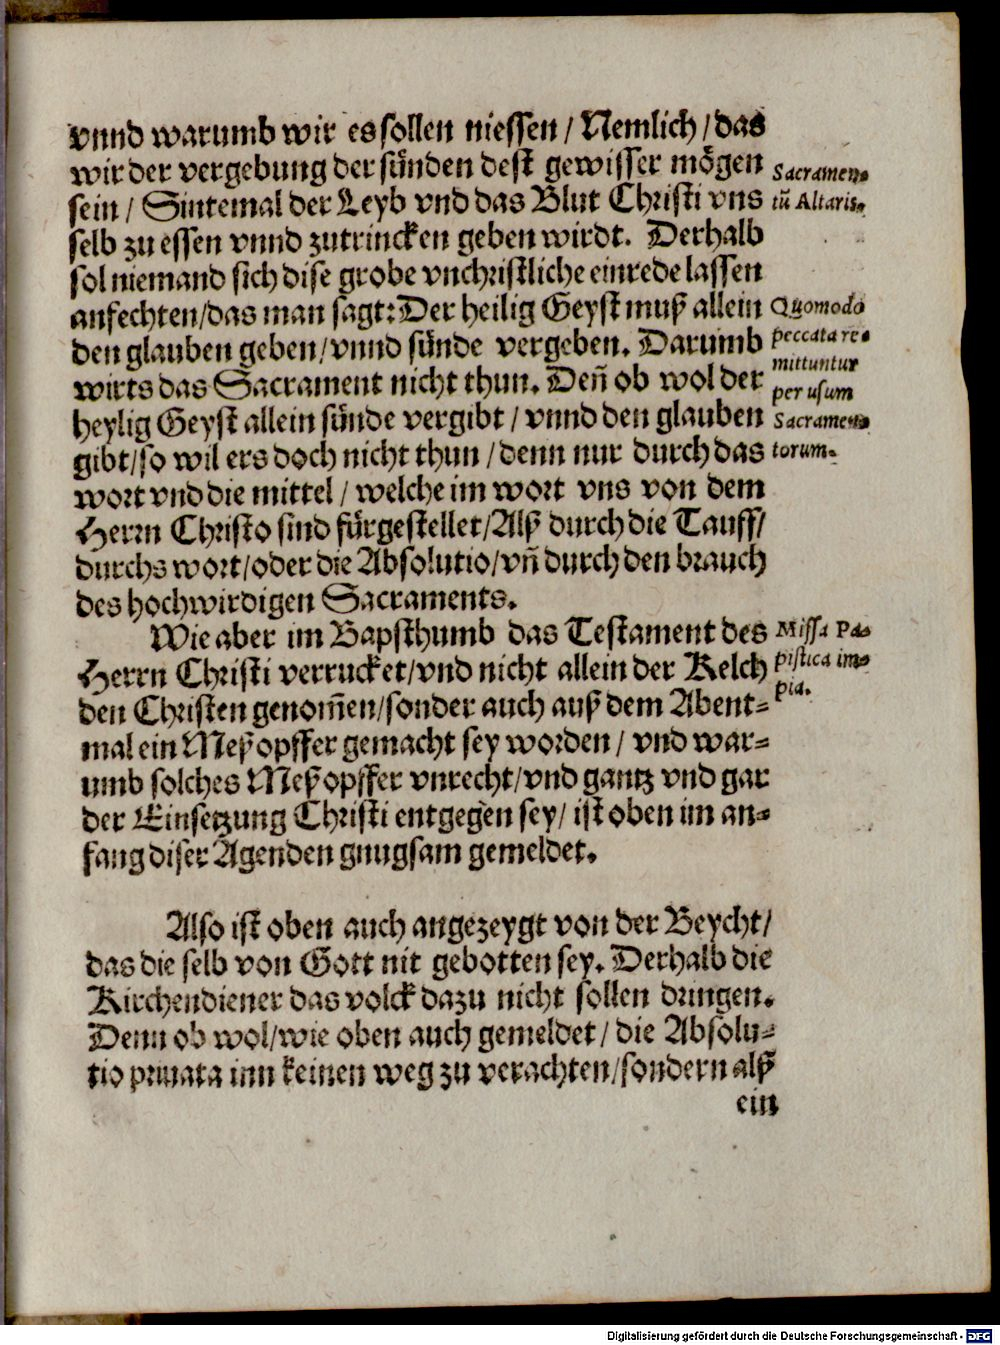 vnnd warumb wir es sollen niessen / Nemlich / das
wir der vergebung der sünden dest gewisser mögen
sein / Sintemal der Leyb vnd das Blut Christi vns
selb zu essen vnnd zutrincken geben wirdt. Derhalb
sol niemand sich dise grobe vnchristliche einrede lassen
anfechten/das man sagt: Der heilig Geyst muß allein
den glauben geben/vnnd sünde vergeben. Darumb
wirts das Sacrament nicht thun. Deñ ob wol der
heylig Geyst allein sünde vergibt / vnnd den glauben
gibt/so wil ers doch nicht thun / denn nur durch das
wort vnd die mittel / welche im wort vns von dem
Herrn Christo sind fürgestellet/Alß durch die Tauff/
durchs wort/oder die Absolutio/vñ durch den brauch
des hochwirdigen Sacraments.
Sacramen-
tū Altaris.
Quomodo
peccata re-
mittuntur
per usum
Sacramen-
torum.
Wie aber im Bapsthumb das Testament des
Herrn Christi verrucket/vnd nicht allein der Kelch
den Christen genom̄en/sonder auch auß dem Abent-
mal ein Meß opffer gemacht sey worden / vnd war-
umb solches Meß opffer vnrecht/vnd gantz vnd gar
der Einsetzung Christi entgegen sey/ ist oben im an-
fang diser Agenden gnugsam gemeldet.
Missa Pa-
pistica im-
pia.
Also ist oben auch angezeygt von der Beycht/
das die selb von Gott nit gebotten sey. Derhalb die
Kirchendiener das volck dazu nicht sollen dringen.
Denn ob wol/wie oben auch gemeldet / die Absolu-
tio priuata inn keinen weg zu verachten/sondern alß
ein
Digitalisierung gefördert durch die Deutsche Forschungsgemeinschaft - DFG